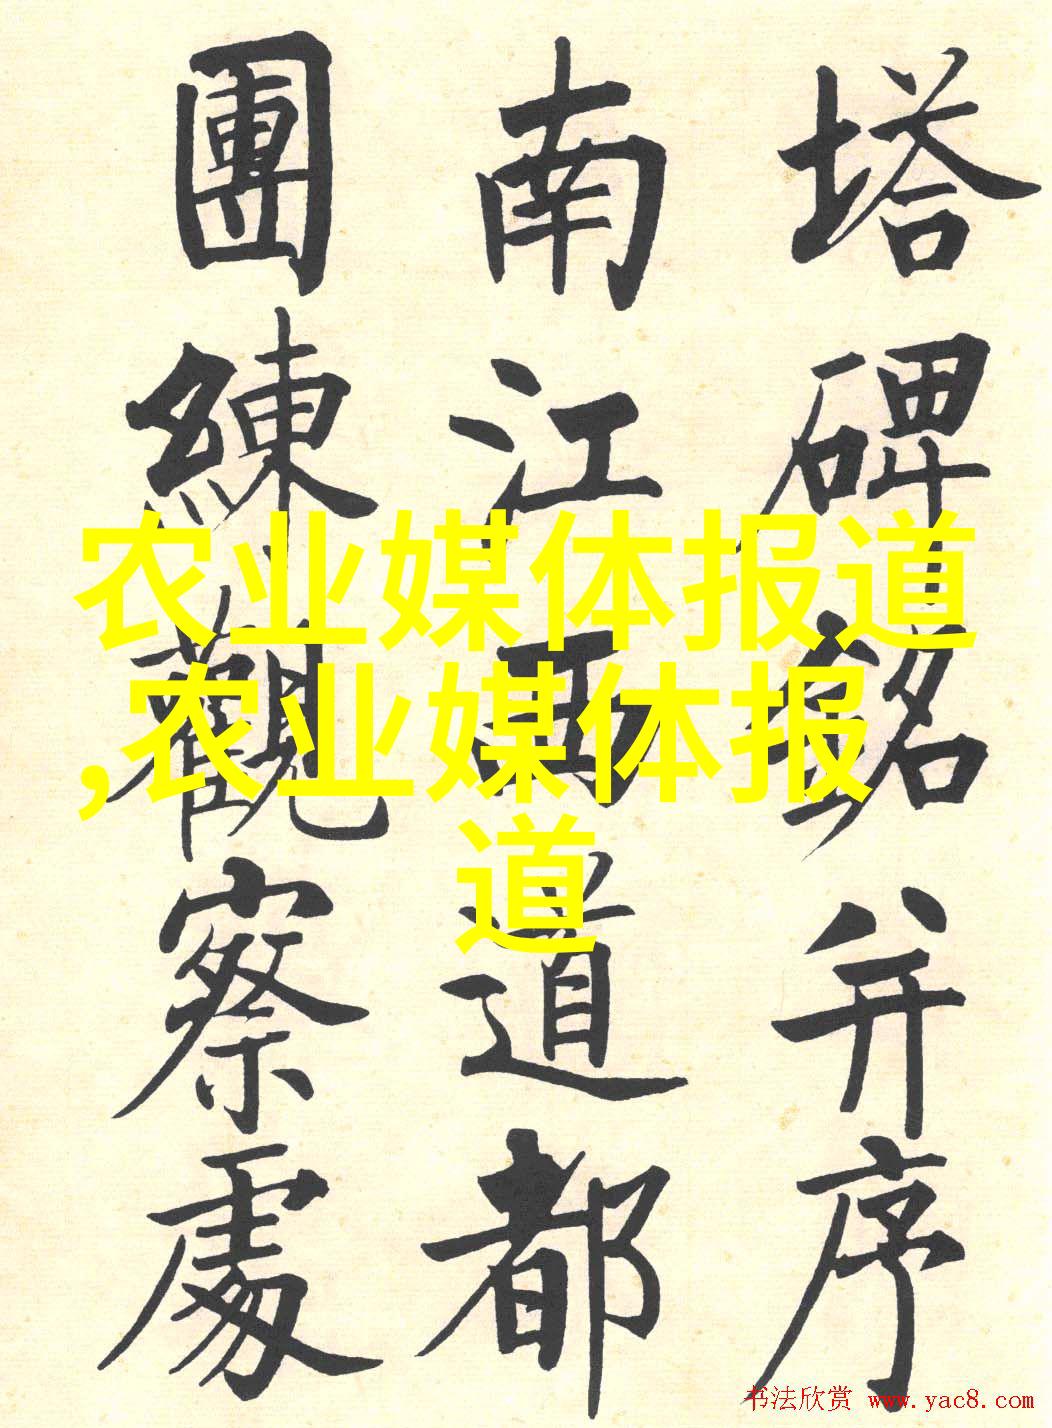 塔碑銘并序
南江西道都
團練觀察處
农业媒体报道
,农业媒体报
道
书法欣赏 www.yac8.com